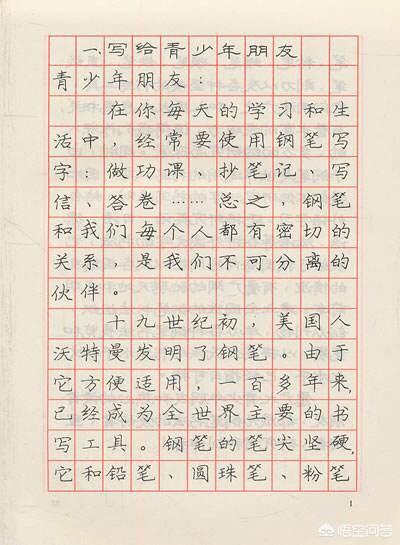 一、写给青少年朋友
青少年朋友：
在你每天的学习和生
活中，经常要使用钢笔写
字：做功课、抄笔记、写
信、答卷……总之，钢笔
和我们每个人都有密切的
关系，是我们不可分离的
伙伴。
十九世纪初，美国人
沃特曼发明了钢笔。由于
它方便适用，一百多年来，
已经成为全世界主要的书
写工具。钢笔的笔尖坚硬，
它和铅笔、圆珠笔、粉笔
1
悟空问答